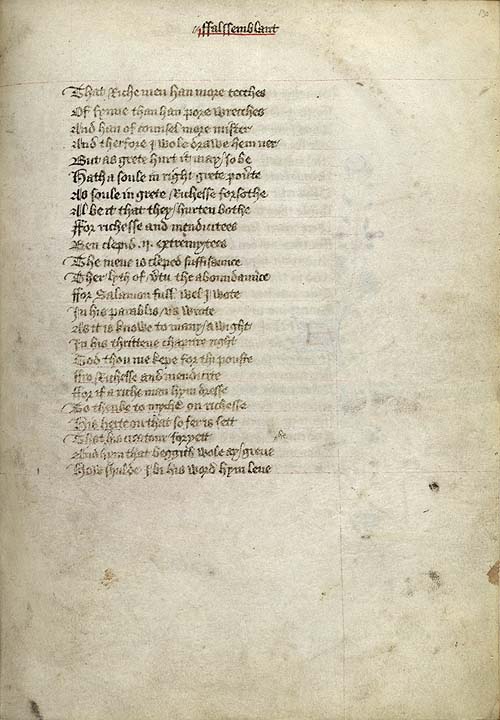 ffalssemblant
130
That Riche men han more tecches
Of synne than han pore wrecches
And han of counsel more mister
And therfore I wole drawe hem ner
But as grete hurt it may so be
Hath a soule in right grete pouͬte
As soule in grete Richesse forsothe
Al be it that they hurten bothe
ffor richesse and mendicitees
Ben clepid .ij. extremytees
The mene is cleped suffisance
Ther lyth of v̾tu the aboundaunce
ffor Salamon full wel I wote
In his parablis us wrote
As it is knowe to many a wight
In his thrittene chapitre right
God thou me kepe for thi pouste
ffro Richesse and mendicite
ffor if a riche man hym dresse
To thenke to myche on richesse
His herte on that so fer is sett
That his creatour foryett
And hym that beggith wole ay greve
How shulde I bi his word hym leve